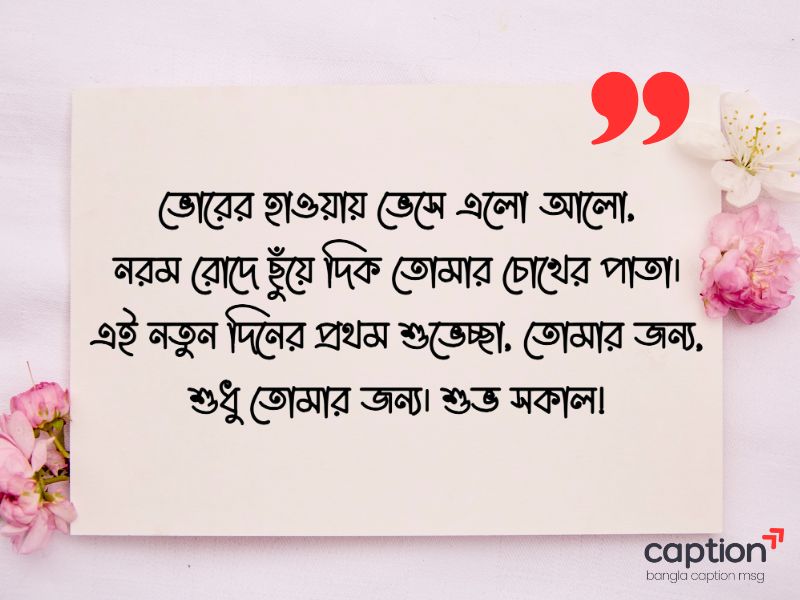 ভোরের হাওয়ায় ভেসে এলো আলো,
নরম রোদে ছুঁয়ে দিক তোমার চোখের পাতা।
এই নতুন দিনের প্রথম শুভেচ্ছা, তোমার জন্য,
শুধু তোমার জন্য। শুভ সকাল!
caption
bangla caption msg